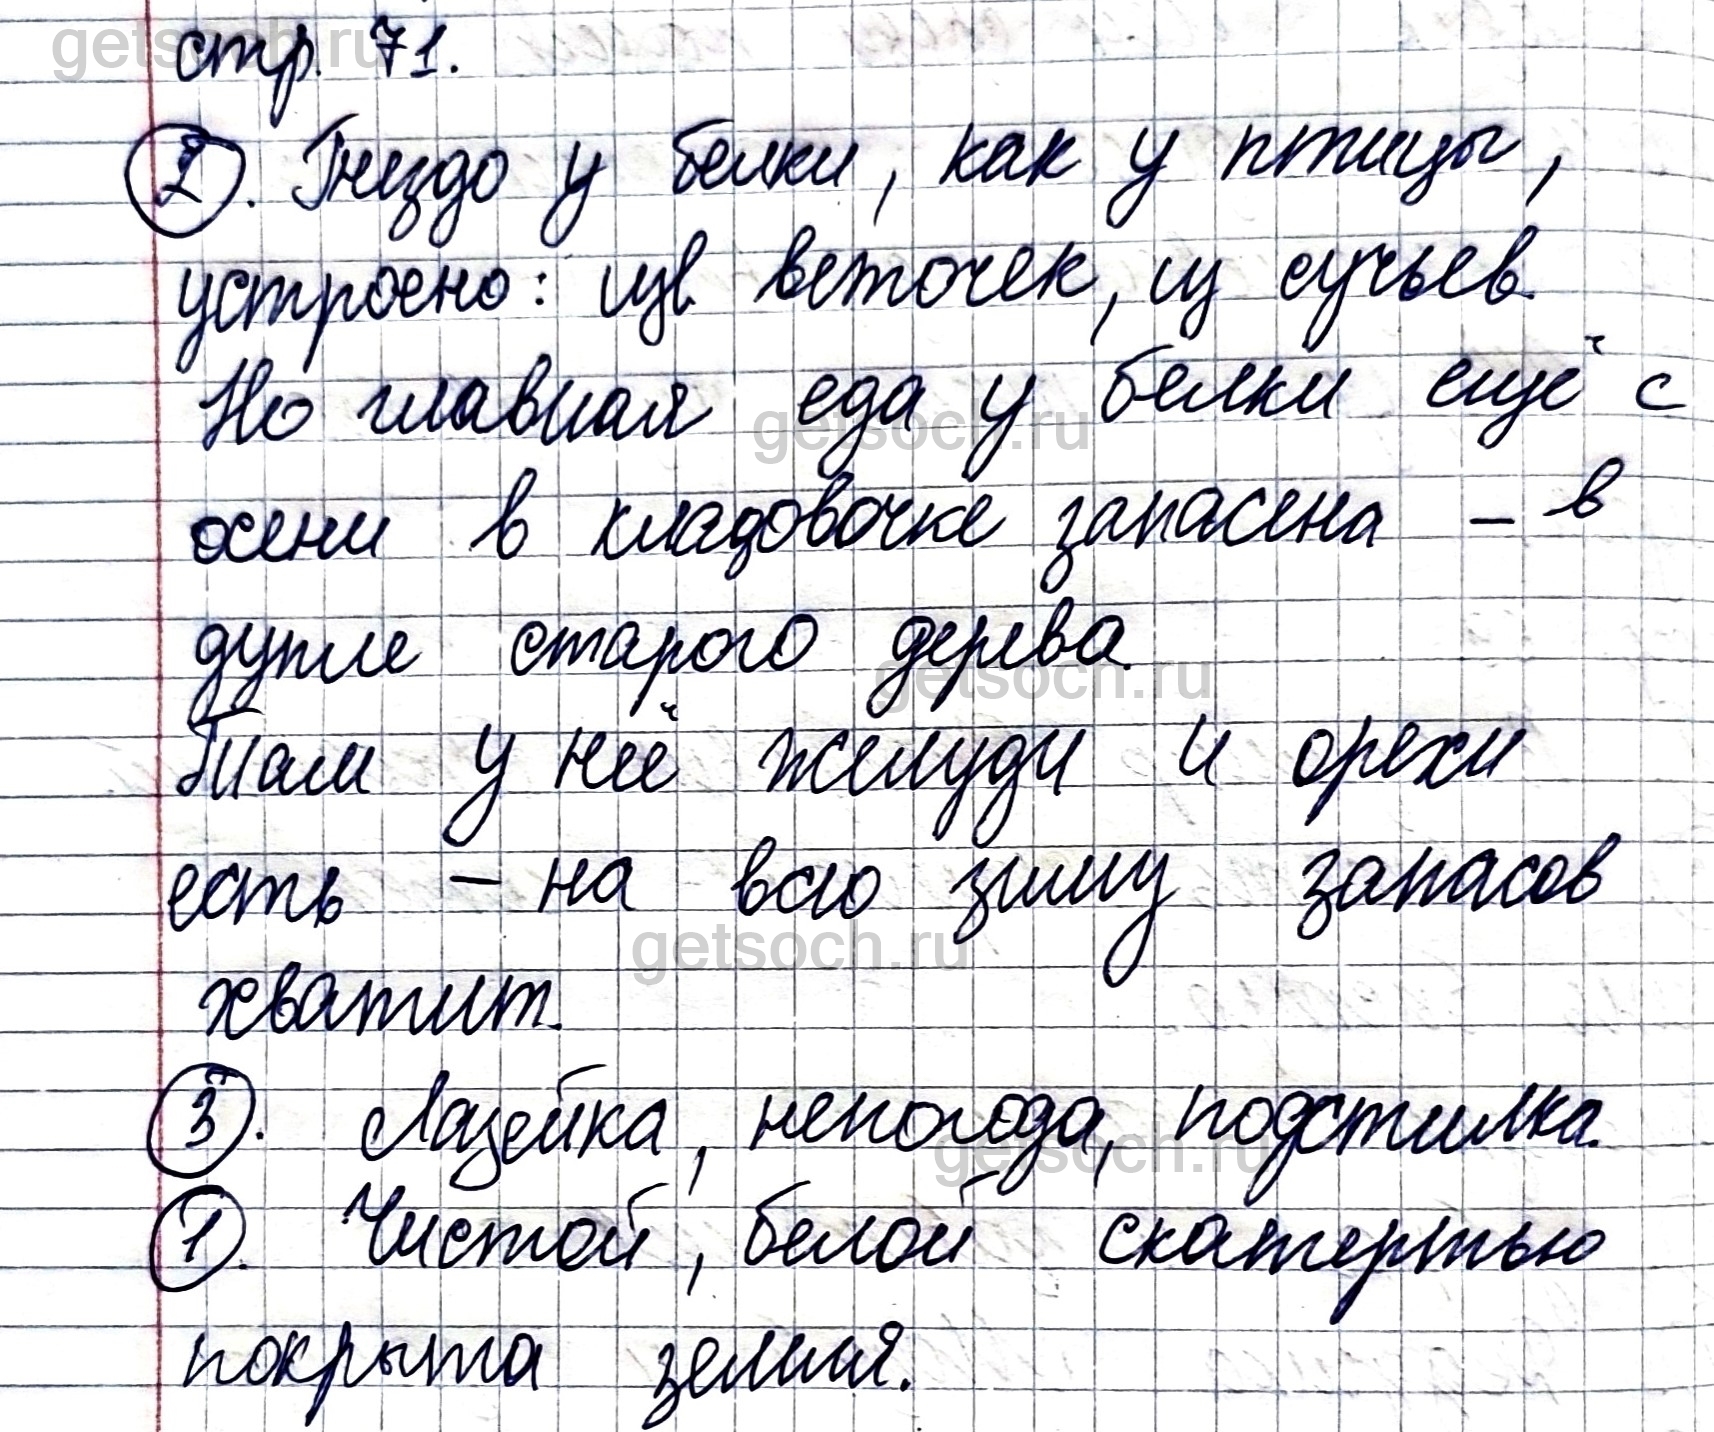 стр. 71.
2. Гнездо у белки, как у птицы,
устроено: из веточек, из сучьев.
Но главная еда у белки ещё с
осени в кладовочке запасена - в
дупле старого дерева.
Там у неё желуди и орехи
есть - на всю зиму запасов
хватит.
3. Лазейка, непогода, подстилка.
1. Чистой, белой скатертью
покрыта земля.
getsoch.ru
getsoch.ru
getsoch.ru
getsoch.ru
getsoch.ru